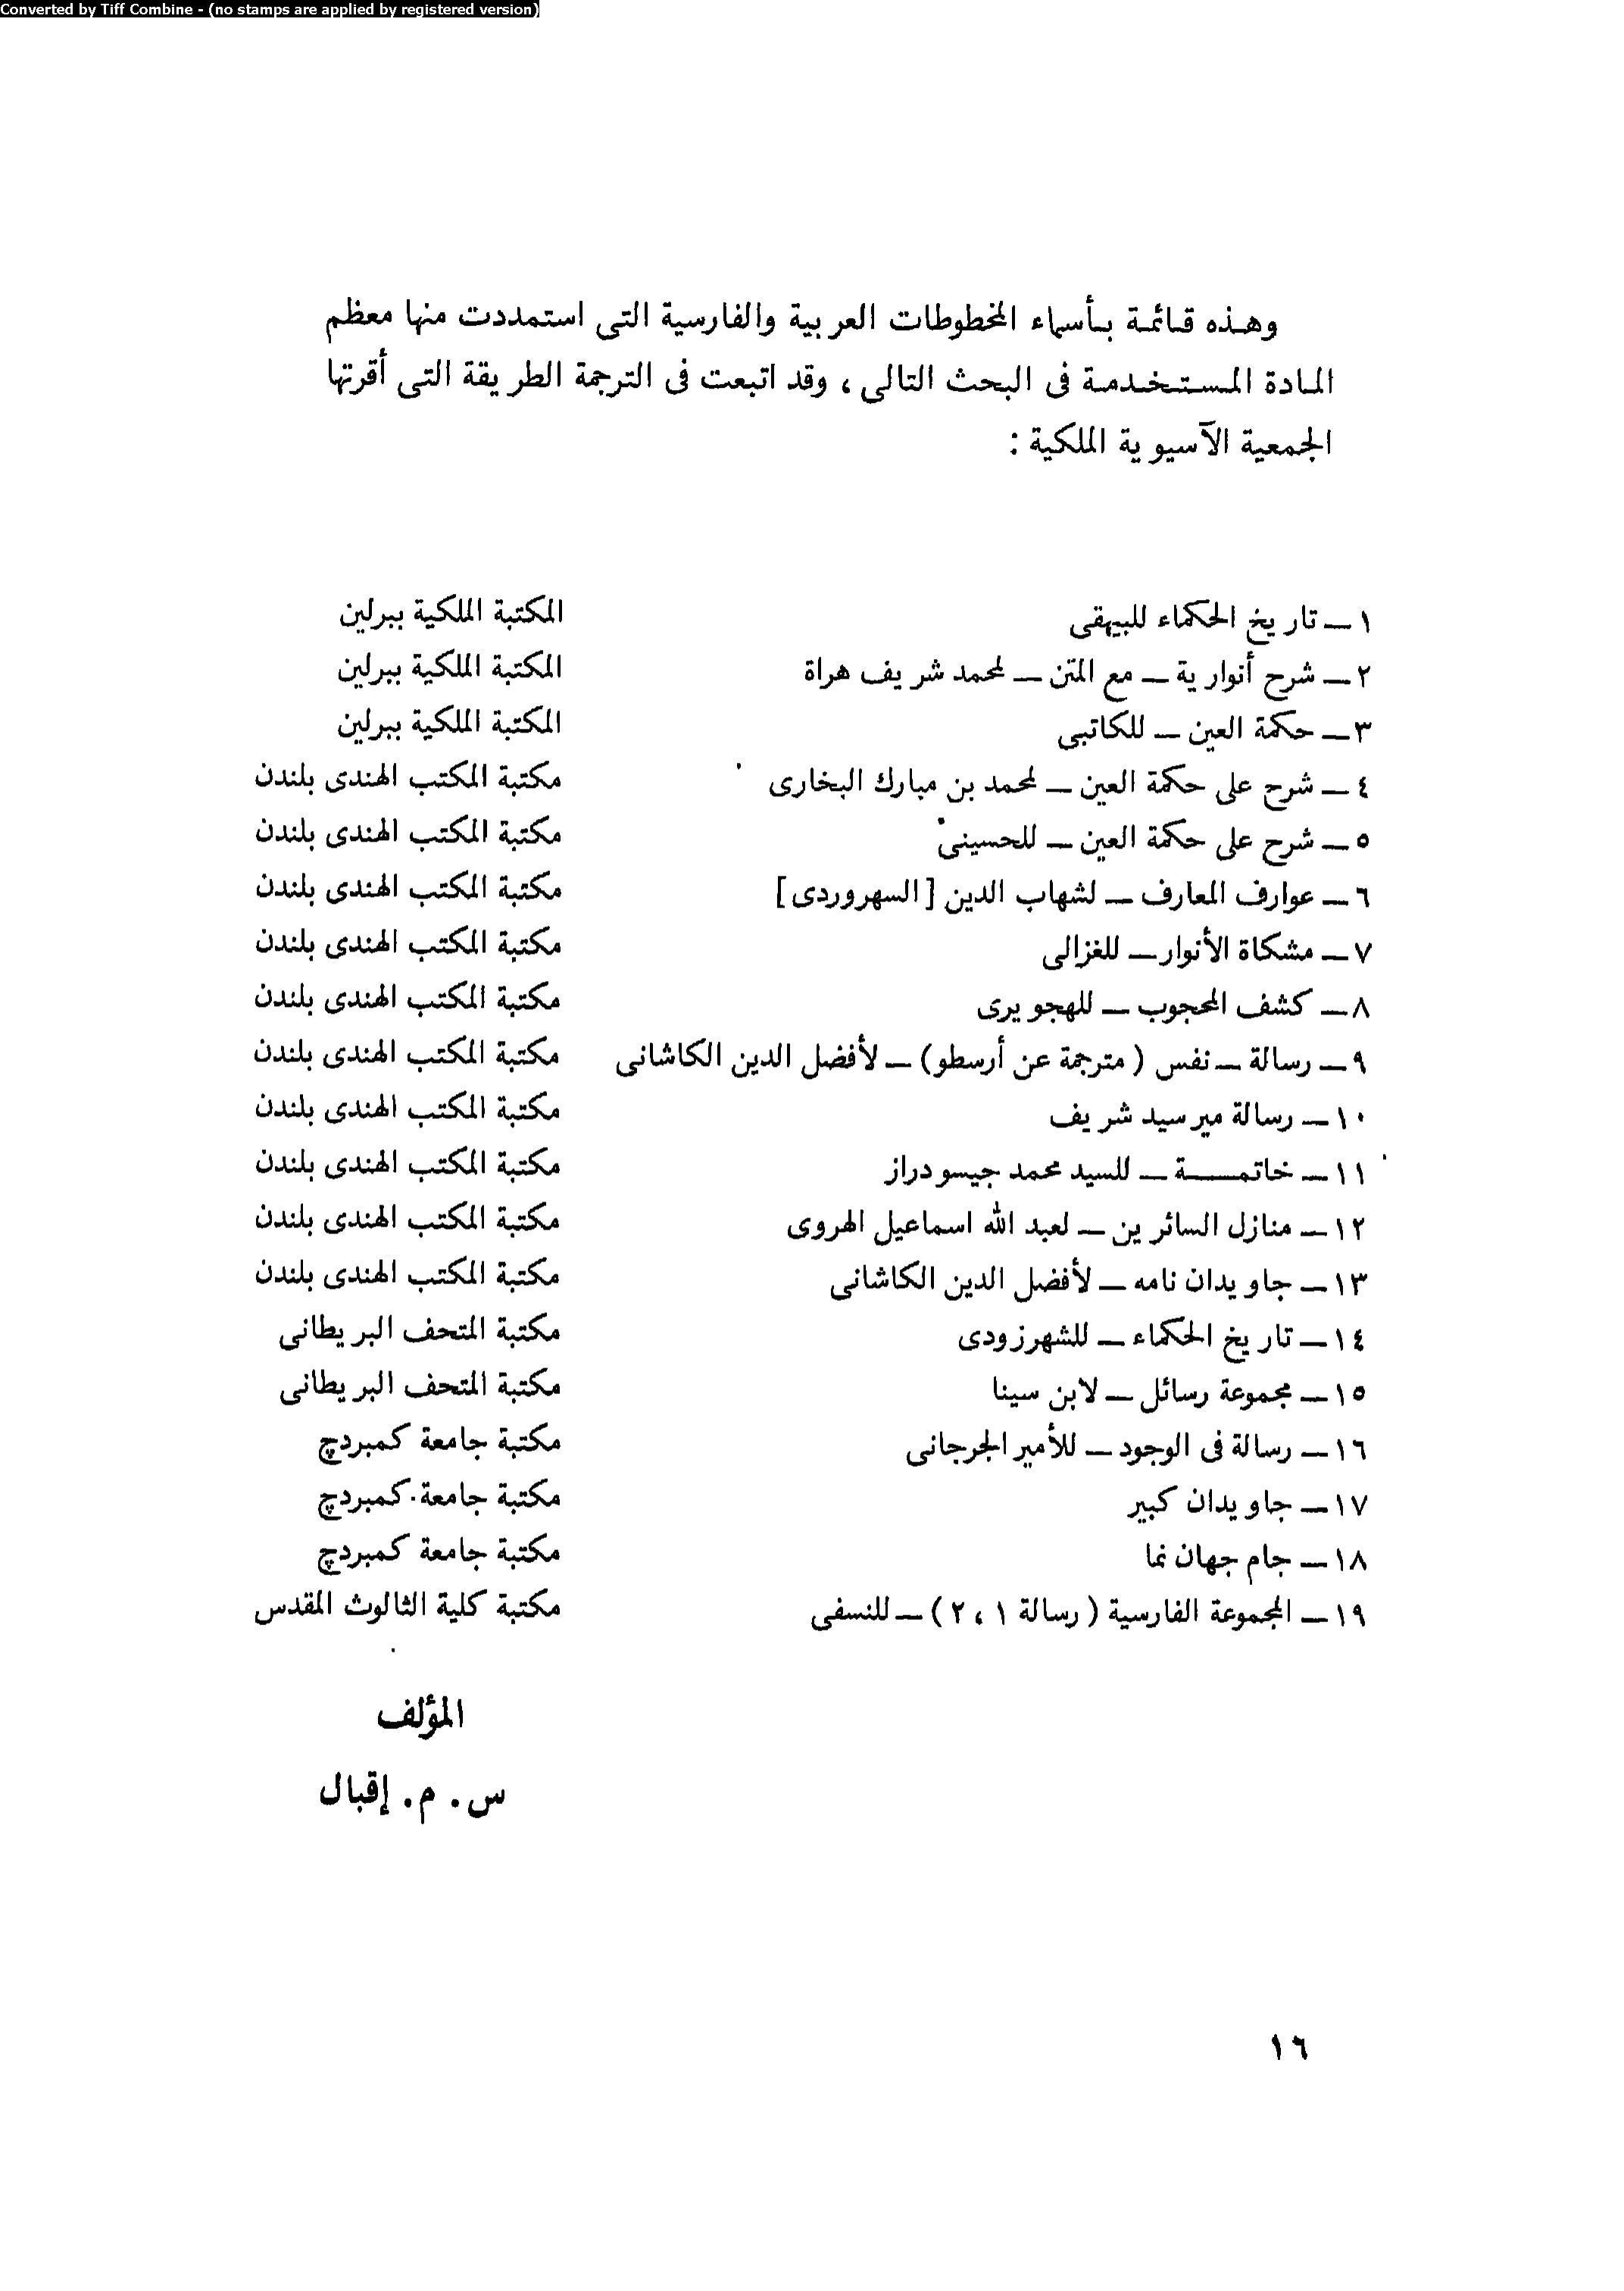 Converted by Tiff Combine - (no stamps are applied by registered version)
وهذه قائمة بأسماء المخطوطات العربية والفارسية التى استمددت منها معظم
المادة المستخدمة فى البحث التالى ، وقد اتبعت فى الترجمة الطريقة التى أقرتها
الجمعية الآسيوية الملكية :
١ — تاريخ الحكماء للبيهقى المكتبة الملكية ببرلين
٢ — شرح أنوارية — مع المتن — لمحمد شريف هراة المكتبة الملكية ببرلين
٣ — حكمة العين — للكاتبى المكتبة الملكية ببرلين
٤ — شرح على حكمة العين — لمحمد بن مبارك البخارى مكتبة المكتب الهندى بلندن
٥ — شرح على حكمة العين — للحسينى مكتبة المكتب الهندى بلندن
٦ — عوارف المعارف — لشهاب الدين [السهروردى] مكتبة المكتب الهندى بلندن
٧ — مشكاة الأنوار — للغزالى مكتبة المكتب الهندى بلندن
٨ — كشف المحجوب — للهجويرى مكتبة المكتب الهندى بلندن
٩ — رسالة — نفس ( مترجمة عن أرسطو) — لأفضل الدين الكاشانى مكتبة المكتب الهندى بلندن
١٠ — رسالة مير سيد شريف مكتبة المكتب الهندى بلندن
١١ — خاتمـــــة — للسيد محمد جيسو دراز مكتبة المكتب الهندى بلندن
١٢ — منازل السائرين — لعبد الله اسماعيل الهروى مكتبة المكتب الهندى بلندن
١٣ — جاويدان نامه — لأفضل الدين الكاشانى مكتبة المكتب الهندى بلندن
١٤ — تاريخ الحكماء — للشهرزودى مكتبة المتحف البريطانى
١٥ — مجموعة رسائل — لابن سينا مكتبة المتحف البريطانى
١٦ — رسالة فى الوجود — للأمير الجرجانى مكتبة جامعة كمبردچ
١٧ — جاويدان كبير مكتبة جامعة كمبردچ
١٨ — جام جهان نما مكتبة جامعة كمبردچ
١٩ — المجموعة الفارسية ( رسالة ١ ، ٢ ) — للنسفى مكتبة كلية الثالوث المقدس
المؤلف
س . م . إقبال
١٦